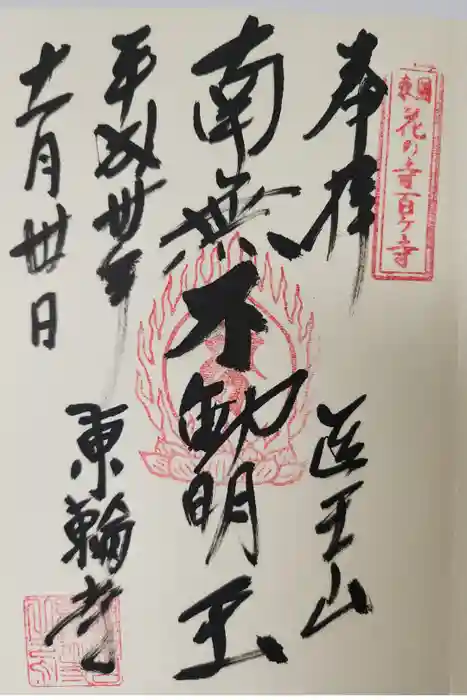 東国花の寺百ヶ寺
奉拝
医王山
南無不動明王
平成卅年
東輪寺
十一月廿日